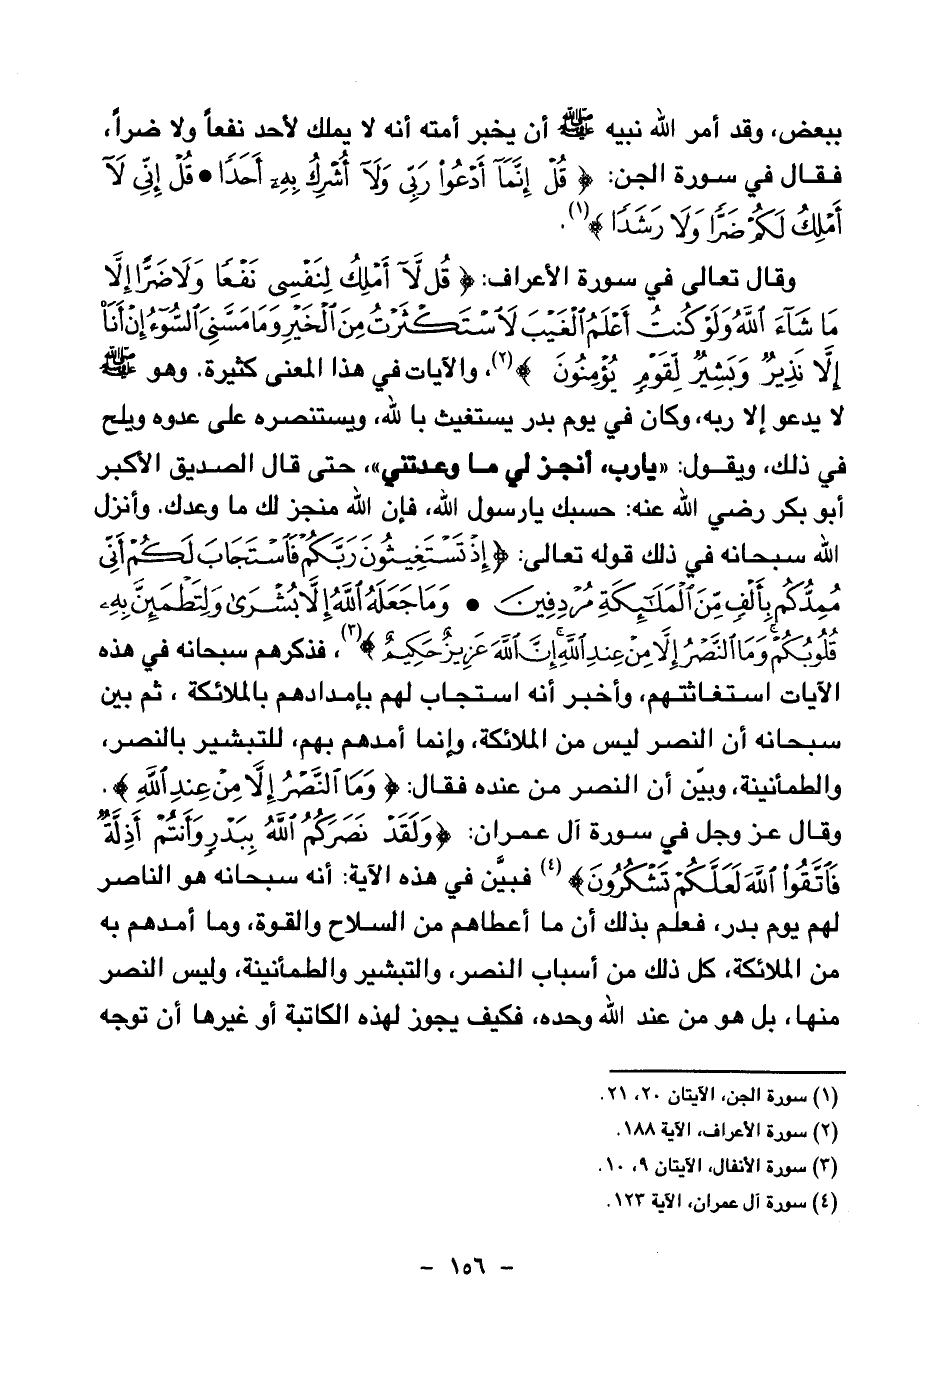 ببعض، وقد أمر الله نبيه ﷺ أن يخبر أمته أنه لا يملك لأحد نفعاً ولا ضراً،
فقال في سورة الجن: ﴿ قُلْ إِنَّمَآ أَدْعُواْ رَبِّى وَلَآ أُشْرِكُ بِهِۦٓ أَحَدًا ● قُلْ إِنِّى لَآ
أَمْلِكُ لَكُمْ ضَرًّا وَلَا رَشَدًا ﴾(١).
وقال تعالى في سورة الأعراف: ﴿ قُل لَّآ أَمْلِكُ لِنَفْسِى نَفْعًا وَلَا ضَرًّا إِلَّا
مَا شَآءَ ٱللَّهُ وَلَوْ كُنتُ أَعْلَمُ ٱلْغَيْبَ لَٱسْتَكْثَرْتُ مِنَ ٱلْخَيْرِ وَمَا مَسَّنِىَ ٱلسُّوٓءُ إِنْ أَنَا۠
إِلَّا نَذِيرٌ وَبَشِيرٌ لِّقَوْمٍ يُؤْمِنُونَ ﴾(٢)، والآيات في هذا المعنى كثيرة. وهو ﷺ
لا يدعو إلا ربه، وكان في يوم بدر يستغيث با لله، ويستنصره على عدوه ويلح
في ذلك، ويقول: «يارب، أنجز لي ما وعدتني»، حتى قال الصديق الأكبر
أبو بكر رضي الله عنه: حسبك يارسول الله، فإن الله منجز لك ما وعدك. وأنزل
الله سبحانه في ذلك قوله تعالى: ﴿ إِذْ تَسْتَغِيثُونَ رَبَّكُمْ فَٱسْتَجَابَ لَكُمْ أَنِّى
مُمِدُّكُم بِأَلْفٍ مِّنَ ٱلْمَلَٰٓئِكَةِ مُرْدِفِينَ ● وَمَا جَعَلَهُ ٱللَّهُ إِلَّا بُشْرَىٰ وَلِتَطْمَئِنَّ بِهِۦ
قُلُوبُكُمْ ۚ وَمَا ٱلنَّصْرُ إِلَّا مِنْ عِندِ ٱللَّهِ ۚ إِنَّ ٱللَّهَ عَزِيزٌ حَكِيمٌ ﴾(٣)، فذكرهم سبحانه في هذه
الآيات استغاثتهم، وأخبر أنه استجاب لهم بإمدادهم بالملائكة ، ثم بين
سبحانه أن النصر ليس من الملائكة، وإنما أمدهم بهم، للتبشير بالنصر،
والطمأنينة، وبيّن أن النصر من عنده فقال: ﴿ وَمَا ٱلنَّصْرُ إِلَّا مِنْ عِندِ ٱللَّهِ ﴾.
وقال عز وجل في سورة آل عمران: ﴿وَلَقَدْ نَصَرَكُمُ ٱللَّهُ بِبَدْرٍ وَأَنتُمْ أَذِلَّةٌ
فَٱتَّقُواْ ٱللَّهَ لَعَلَّكُمْ تَشْكُرُونَ﴾(٤) فبيَّن في هذه الآية: أنه سبحانه هو الناصر
لهم يوم بدر، فعلم بذلك أن ما أعطاهم من السلاح والقوة، وما أمدهم به
من الملائكة، كل ذلك من أسباب النصر، والتبشير والطمأنينة، وليس النصر
منها، بل هو من عند الله وحده، فكيف يجوز لهذه الكاتبة أو غيرها أن توجه
(١) سورة الجن، الآيتان ٢٠، ٢١.
(٢) سورة الأعراف، الآية ١٨٨.
(٣) سورة الأنفال، الآيتان ٩، ١٠.
(٤) سورة آل عمران، الآية ١٢٣.
- ١٥٦ -